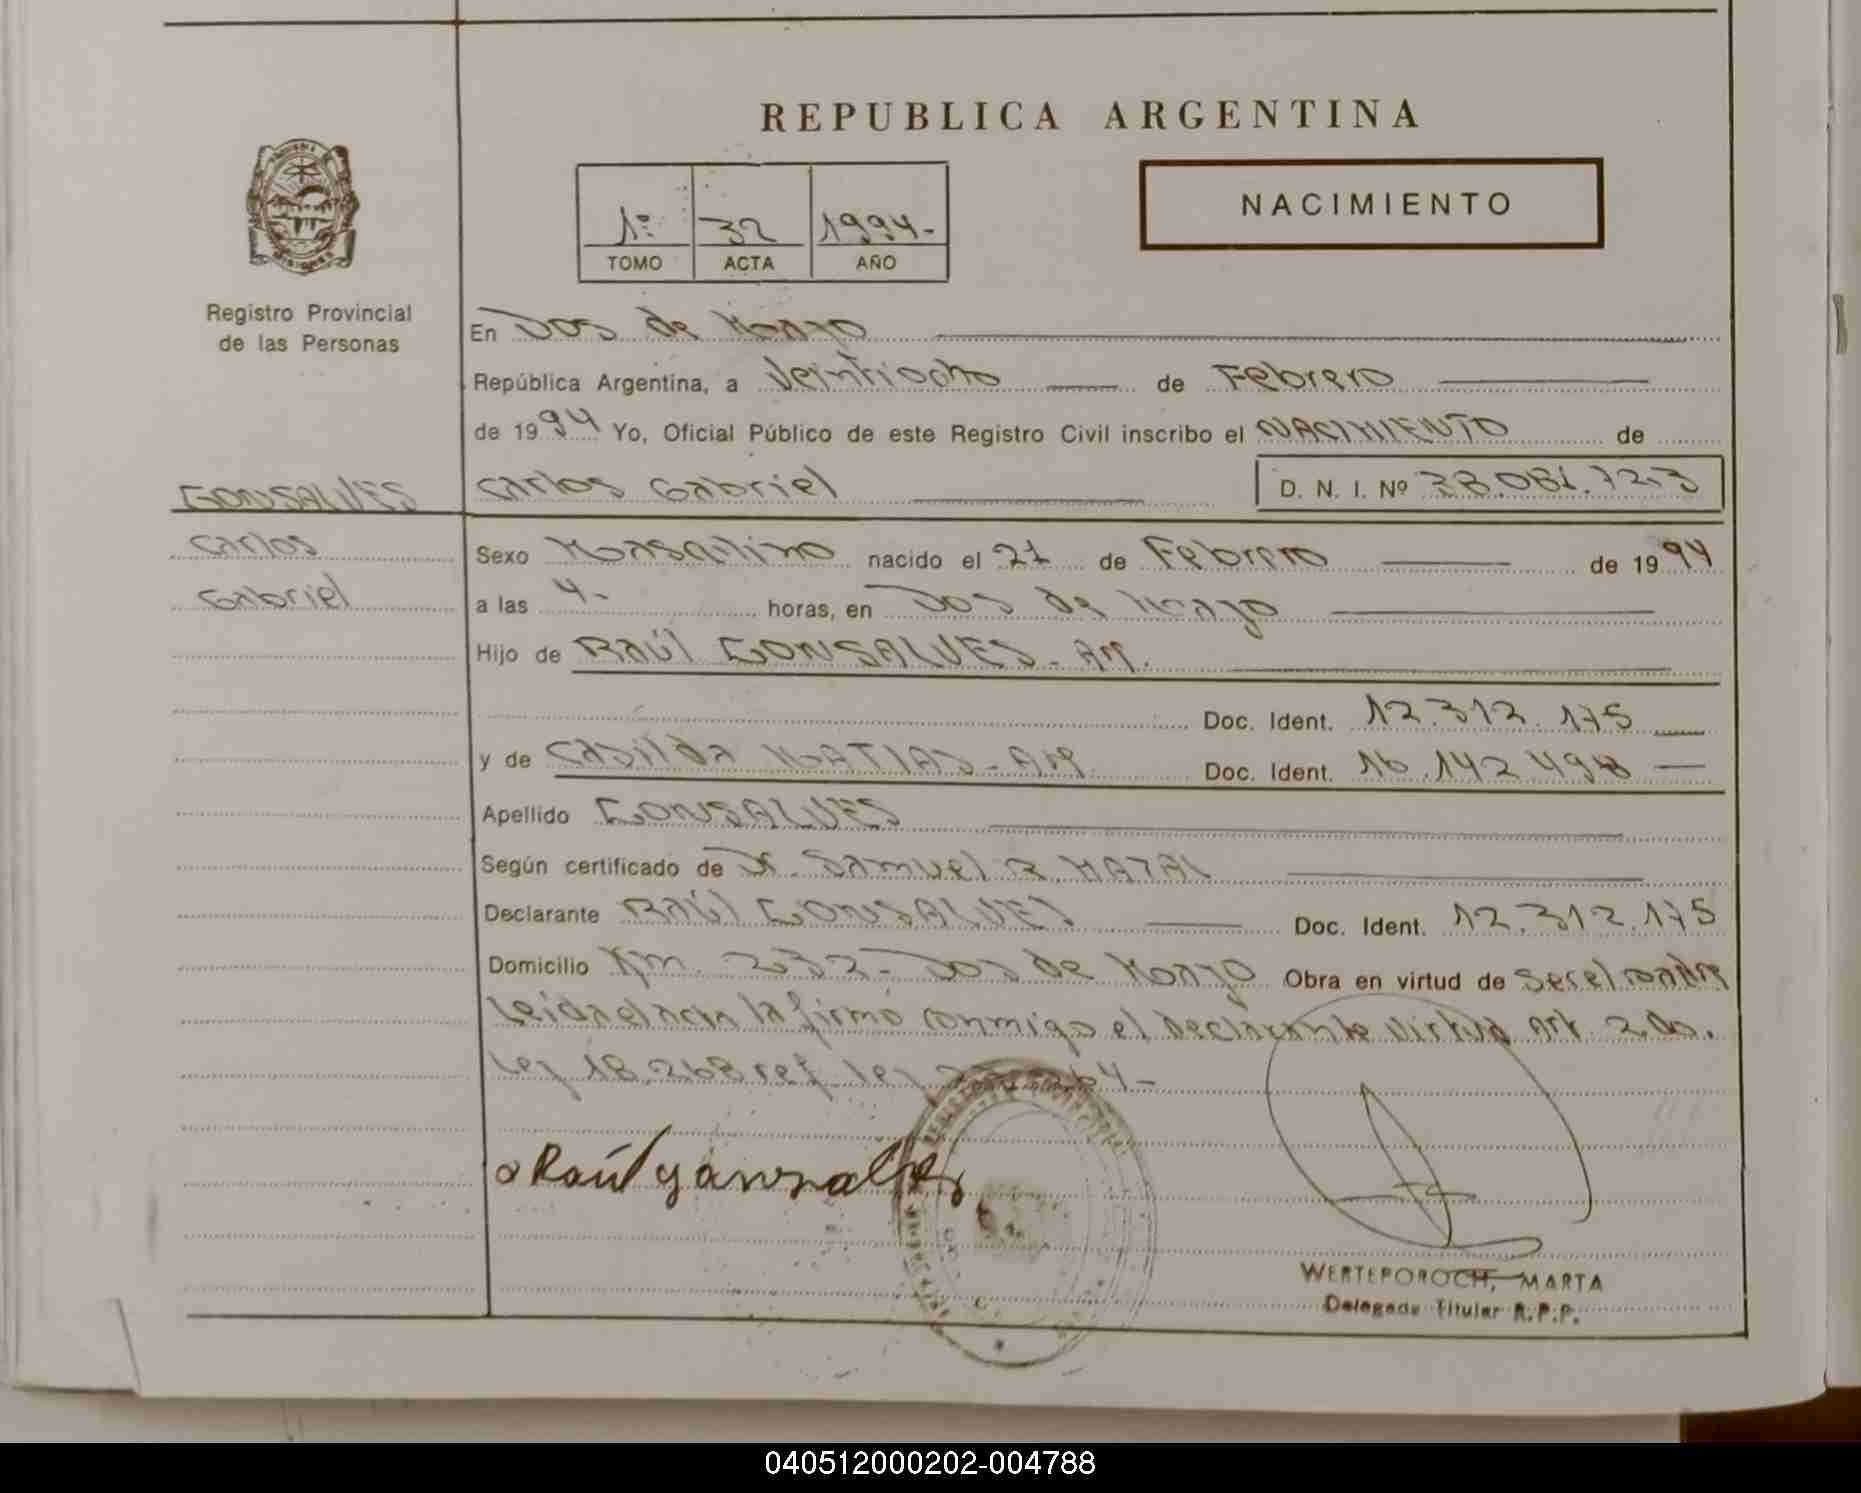 REPUBLICA ARGENTINA
NACIMIENTO
1º 32 1994-
TOMO ACTA AÑO
Registro Provincial
de las Personas
En Dos de Mayo
República Argentina, a Veintiocho de Febrero
de 1994 Yo, Oficial Público de este Registro Civil inscribo el NACIMIENTO de
GONSALVES
Carlos Gabriel D. N. I. Nº 38.081.723
Carlos
Gabriel
Sexo Masculino nacido el 21 de Febrero de 1994
a las 4- horas, en Dos de Mayo
Hijo de RAÚl GONSALVES - AR.
Doc. Ident. 12.312.175
y de CASilda MATIAS - AR Doc. Ident. 16.142.498
Apellido GONSALVES
Según certificado de Dr. Samuel
Declarante RAÚl GONSALVES Doc. Ident. 12.312.175
Domicilio Km. 232 - Dos de Mayo Obra en virtud de ser el padre
Leida el acta la firmó conmigo el declarante virtud Art. 2do.
Ley 18.268 ref. ley
Raúl gonsalves
WERTEPOROCH, MARTA
Delegada Titular R.P.P.
040512000202-004788